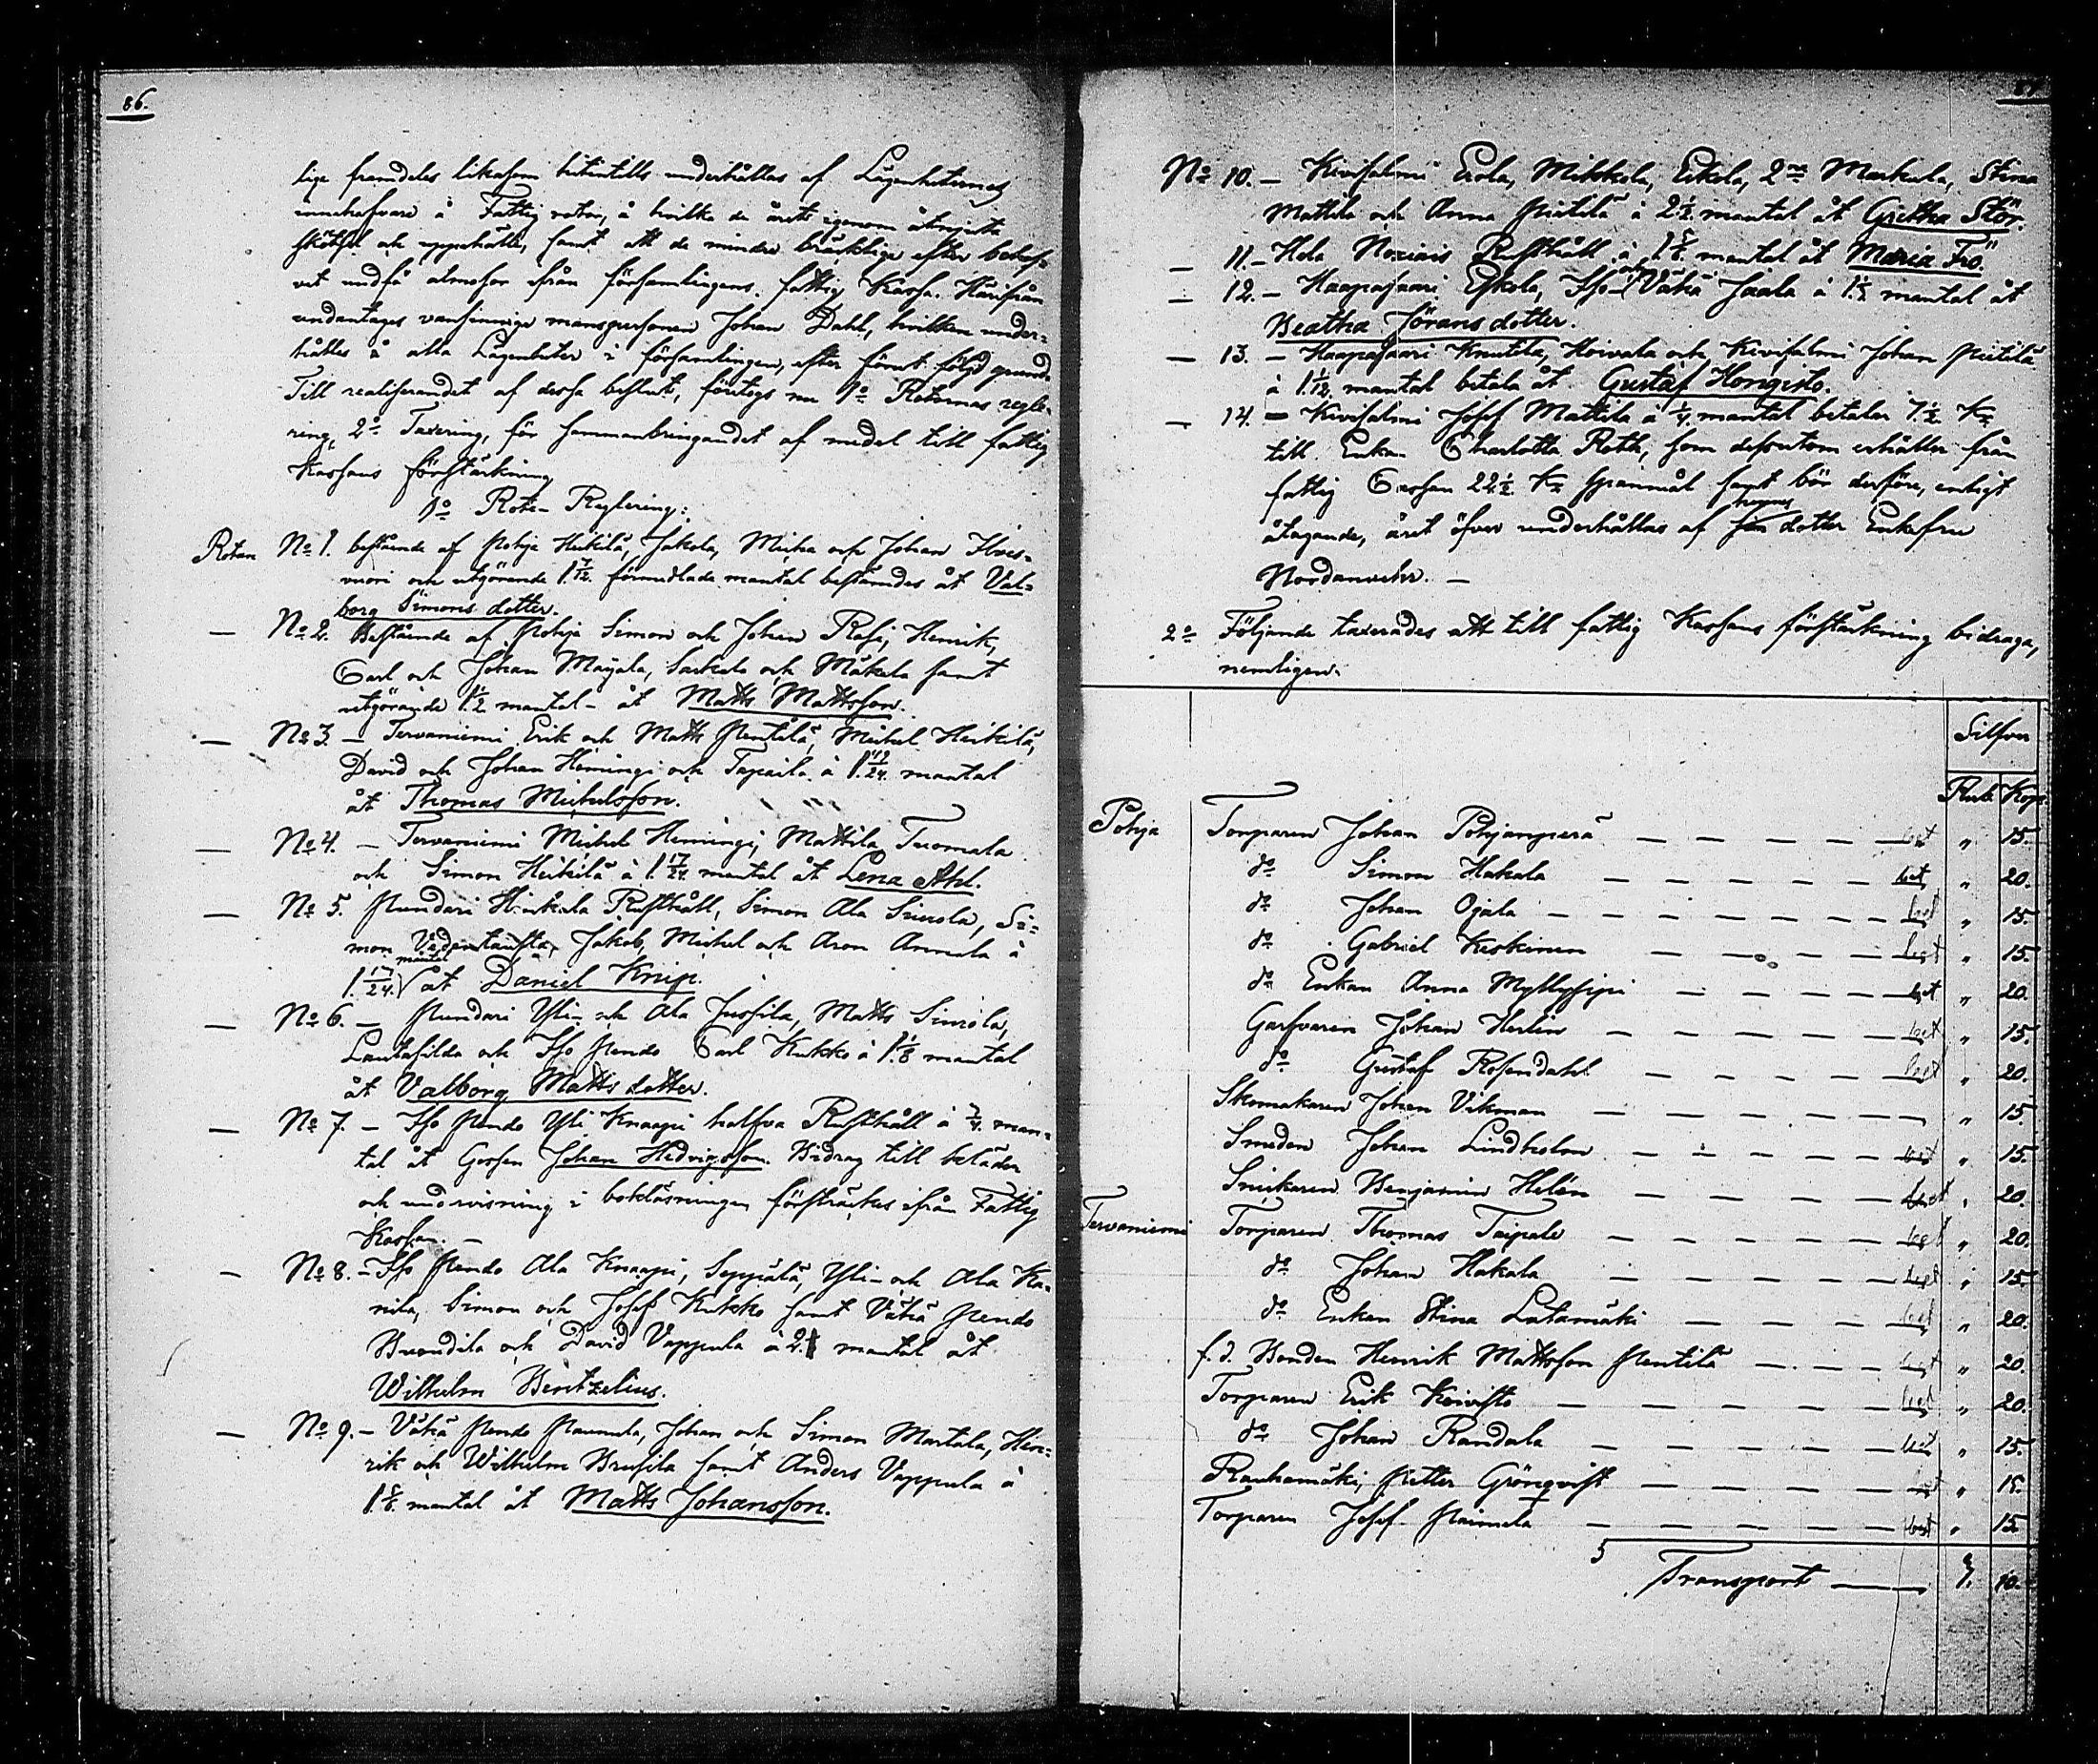 86.
lige framdeles likasom hitintills underhållas af Lägenheternes
innehafvare å Fattig rotar, å hvilka de årets igenom åtnjuta
skötsel och uppehälle, samt att de mindre bräcklige efter behof-
vet undfå almosor från församlingens fattig Kassa. Härifrån
undantages vansinnige manspersonen Johan Dahl, hvilken under-
hålles å alla Lägenheter i församlingen, efter förut följd grund.
Till realiserandet af dessa beslut, företogs nu 1o Rotarnas regle-
ring, 2o Taxering, för sammanbringandet af medel till fattig
Kassans förstärkning
1o Rote-Reglering:
Rotan No 1. bestående af Pohja Heikilä, Jakola, Micha och Johan Ilves-
vuori och utgörande 1 7/12. förmedlade mantal bestämdes åt Val-
borg Simons dotter.
— No 2. Bestående af Pohja Simon och Johan Rasi, Henrik,
Carl och Johan Maijala, Sarkala och Mäkelä samt
utgörande 1 1/2 mantal - åt Matts Mattsson.
— No 3. — Tervaniemi Erik och Matts Pentilä, Michel Heikilä,
David och Johan Hemingi och Tapaila à 1 19/24. mantal
åt Thomas Michelsson.
— No 4. — Tervaniemi Michel Hemingi, Mattila Tuomala
och Simon Heikilä à 1. 17/24. mantal åt Lena Ahl.
— No 5. Pundari Hinkala Rusthåll, Simon Ala Simola, Si-
mon Vädentausta, Jakob, Michel och Aron Annala à
1. 17/24. mantal åt Daniel Knip.
— No 6. — Pundari Yli- och Ala Jussila, Matts Simola,
Lautasilda och Iso Pendo Carl Kukko à 1. 1/8 mantal
åt Valborg Matts dotter.
— No 7. — Iso Pendo Yli Knaapi halfva Rusthåll à 3/4. man-
tal åt Gossen Johan Hedvigsson. Bidrag till kläder
och undervisning i bokläsningen försträckes ifrån Fattig
Kassan. —
— No 8. — Iso Pendo Ala Knaapi, Seppälä, Yli- och Ala Ka-
nila, Simon och Josef Kukko samt Vähä Pendo
Brendila och David Vappula à 2. mantal åt
Wilhelm Bentzelius.
— No 9. — Vähä Pendo Paunula, Johan och Simon Martala, Hen-
rik och Wilhelm Brusila samt Anders Vappula à
1. 5/8. mantal åt Matts Johansson.
87
No 10. — Kivisalmi Erola, Mikkola, Eskola, 2ne Markula, Stina
Mattila och Anna Pietilä à 2 1/2 mantal åt Gretha Stör.
— 11. — Hela Noxiais Rusthåll à 1 5/8. mantal åt Maria Frö.
— 12. — Haapasaari Eskola, Iso- och Vähä Jaala à 1. 1/2 mantal åt
Beatha Jöransdotter.
— 13. — Haapasaari Knutila, Hoivala och Kivisalmi Johan Pietilä
à 1. 1/12. mantal betala åt Gustaf Hongisto.
— 14. — Kivisalmi Josef Mattila à 1/4. mantal betalar 7. 1/2. Kr
till Enkan Charlotta Roth, som dessutom erhåller från
fattig Cassan 22 1/2 Kr Spanmål samt bör derföre, enligt
åtagande, året öfver underhållas af hennes dotter Enkefru
Nordanvehr. —
2o Följande taxerades att till fattig Kassans förstärkning bidraga,
nemligen.
Silfver
Rub Kop
Pohja Torparen Johan Pohjanperä — — — — — — bet „ 15.
do Simon Hakala — — — — — — bet „ 20.
do Johan Ojala — — — — — — — bet „ 15.
do Gabriel Keskinen — — — — — bet „ 15.
do Enkan Anna Myllysipi — — — — — bet „ 20.
Garfvaren Johan Herlin — — — — — — bet „ 15.
do Gustaf Rosendahl — — — — — bet „ 20.
Skomakaren Johan Vikman — — — — — — — „ 15.
Smeden Johan Lindholm — — — — — — bet „ 15.
Snickaren Benjamin Helén — — — — — — bet „ 20.
Tervaniemi Torparen Thomas Taipale — — — — — — bet „ 20.
do Johan Hakala — — — — — — bet „ 15.
do Enkan Stina Latamäki — — — — — bet „ 20.
f. d. Bonden Henrik Mattsson Pentilä — — — — bet „ 20.
Torparen Erik Koivisto — — — — — — bet „ 20.
do Johan Randala — — — — — — bet „ 15.
Rauhamäki, Petter Grönqvist — — — — — bet „ 15.
Torparen Josef Paunela — — — — — — bet „ 15
Transport — 3. 10.